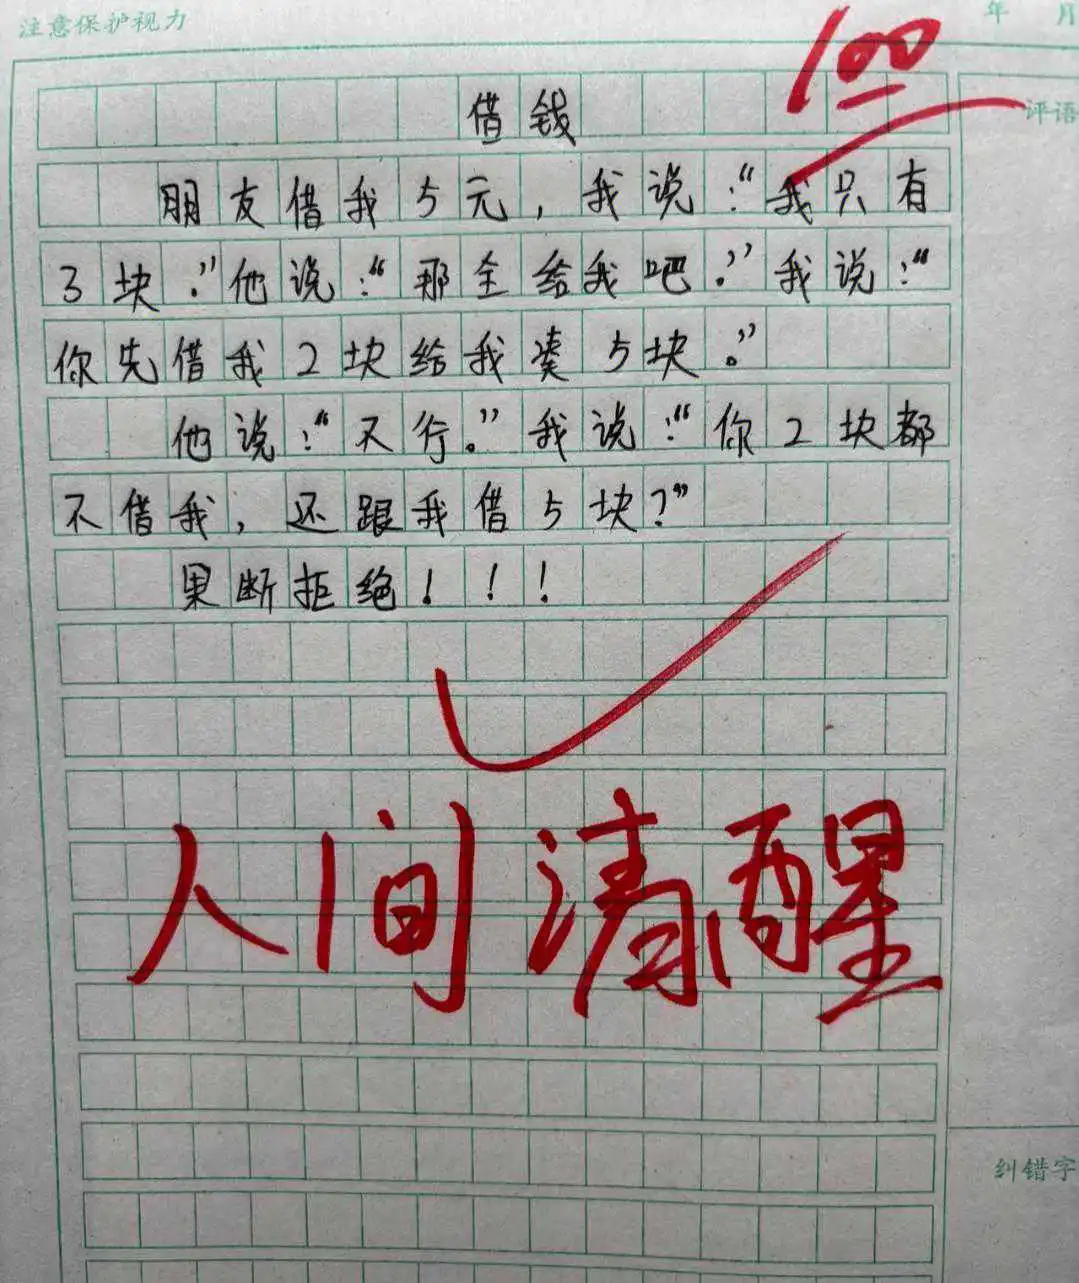 注意保护视力
年 月
100
评语
借钱
朋友借我5元，我说："我只有
3块。"他说："那全给我吧。"我说："
你先借我2块给我凑5块。"
他说："不行。"我说："你2块都
不借我，还跟我借5块？"
果断拒绝！！！
人间清醒
纠错字